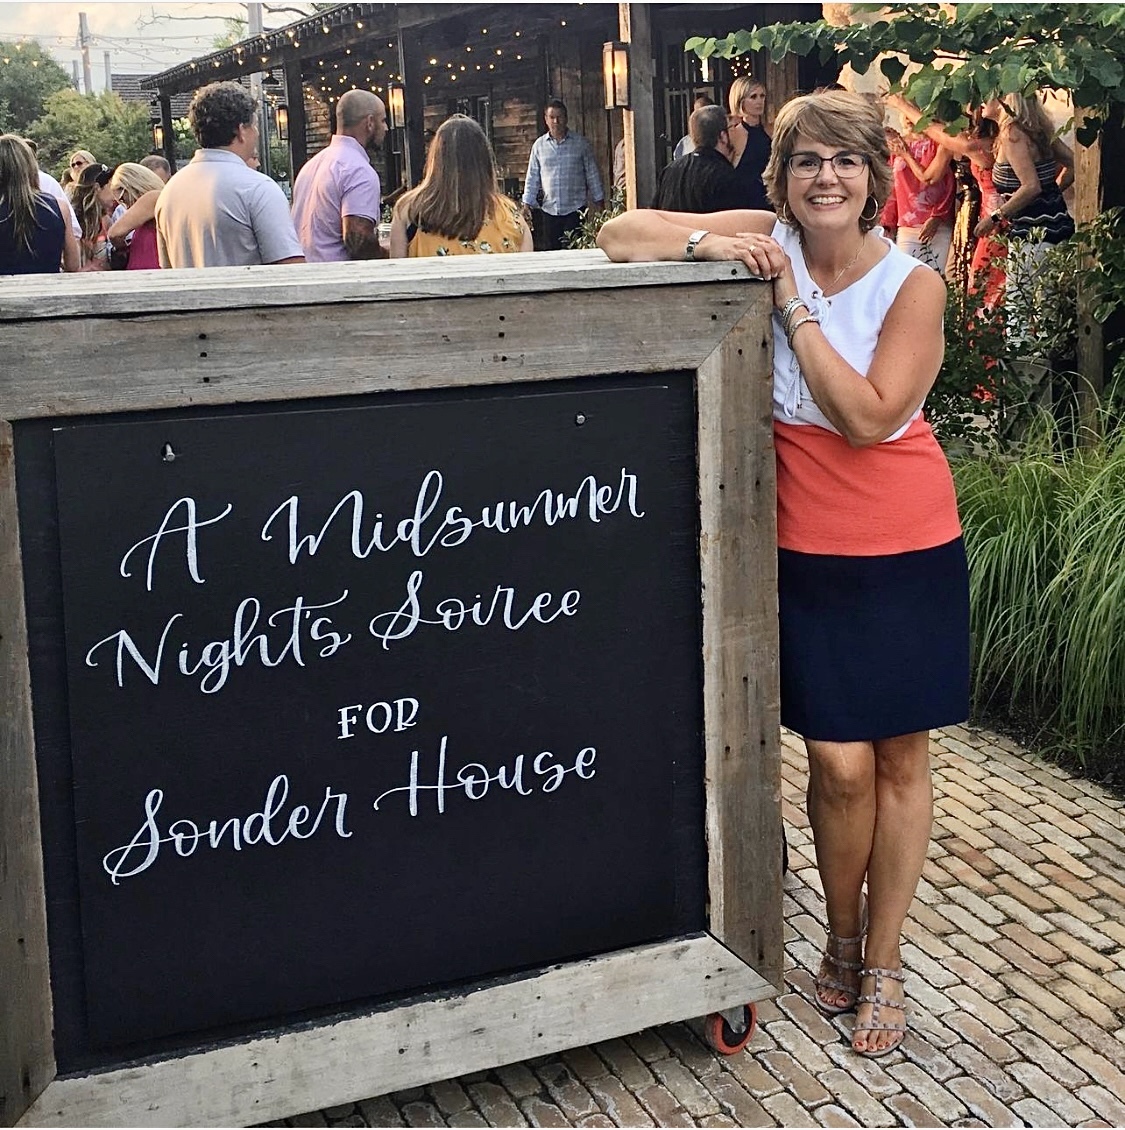 A Midsummer
Night's Soiree
FOR
Sonder House